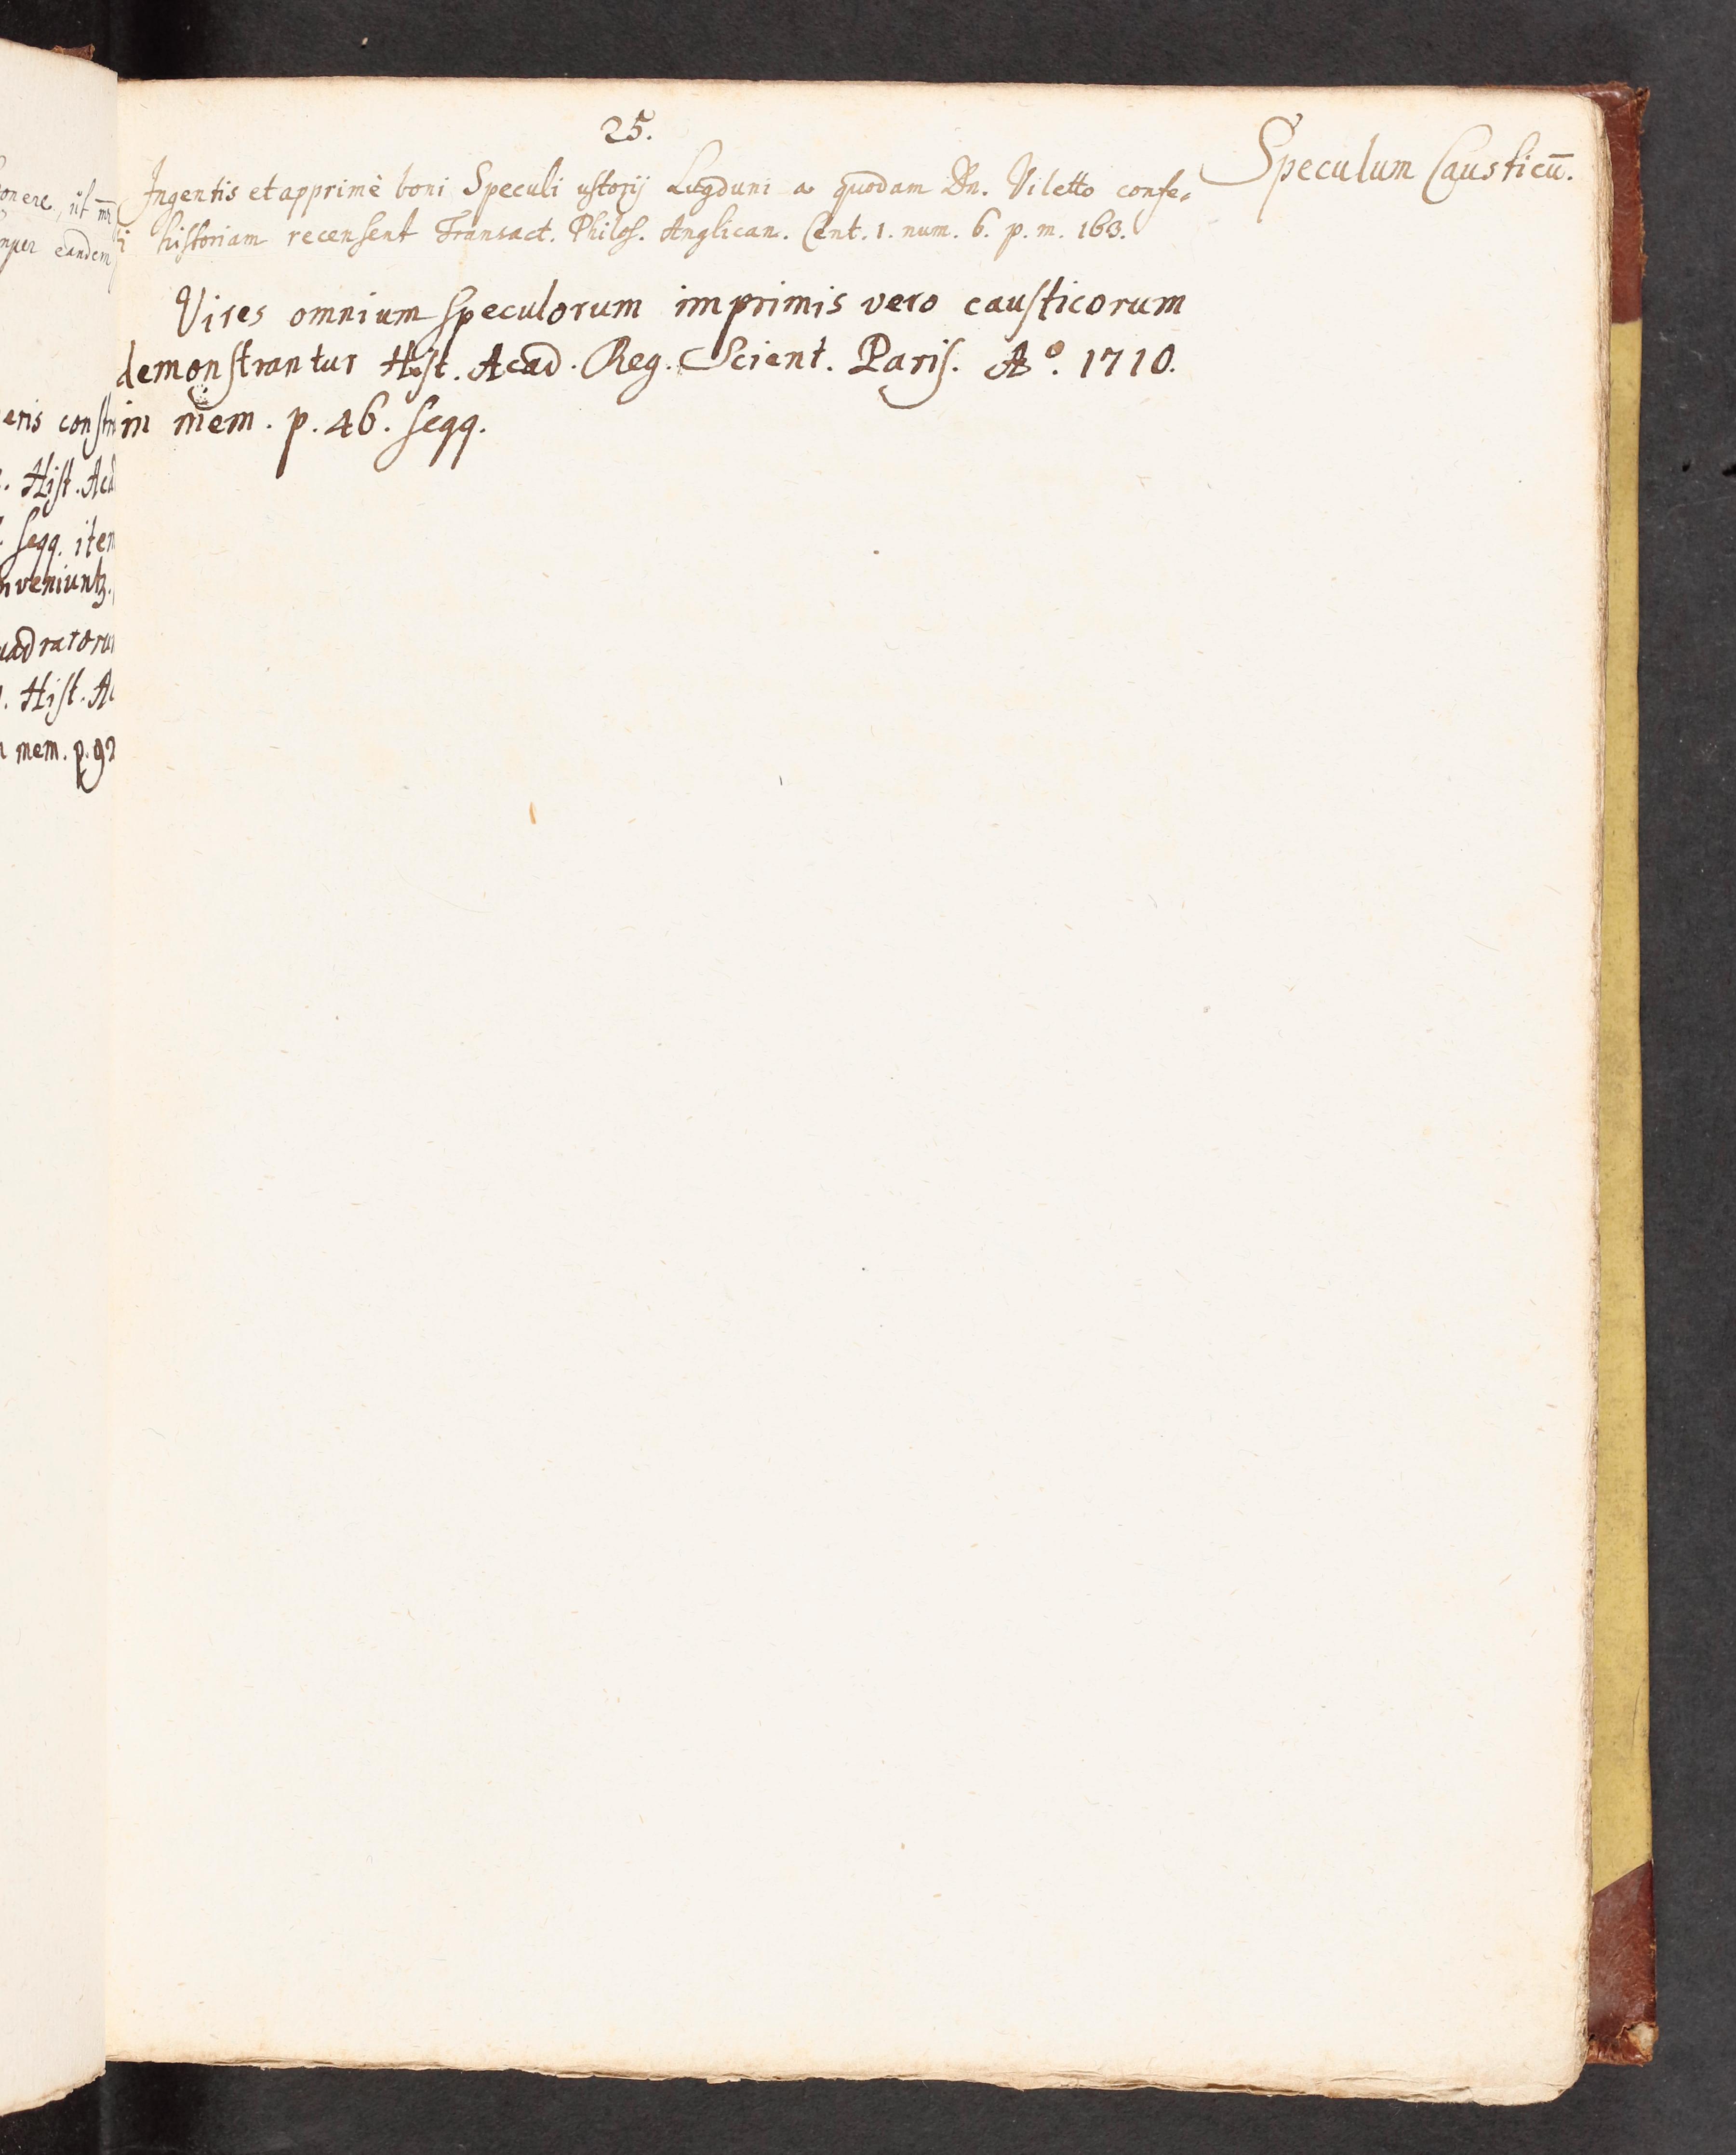 25.
Speculum Causticū.
Ingentis et apprimè boni Speculi ustorij Lugduni a quodam Dn. Viletto confe-
i historiam recensent Transact. Philos. Anglican. Cent. 1. num. 6. p. m. 163.
Vires omnium speculorum imprimis vero causticorum
demonstrantur Hist. Acad. Reg. Scient. Paris. Aº. 1710.
in mem. p. 46. seqq.
onere, ut
eandem
eris
. Hist. Acd
seqq. item
nveniuntz.
uadratoru
. Hist. A
mem. p. 92